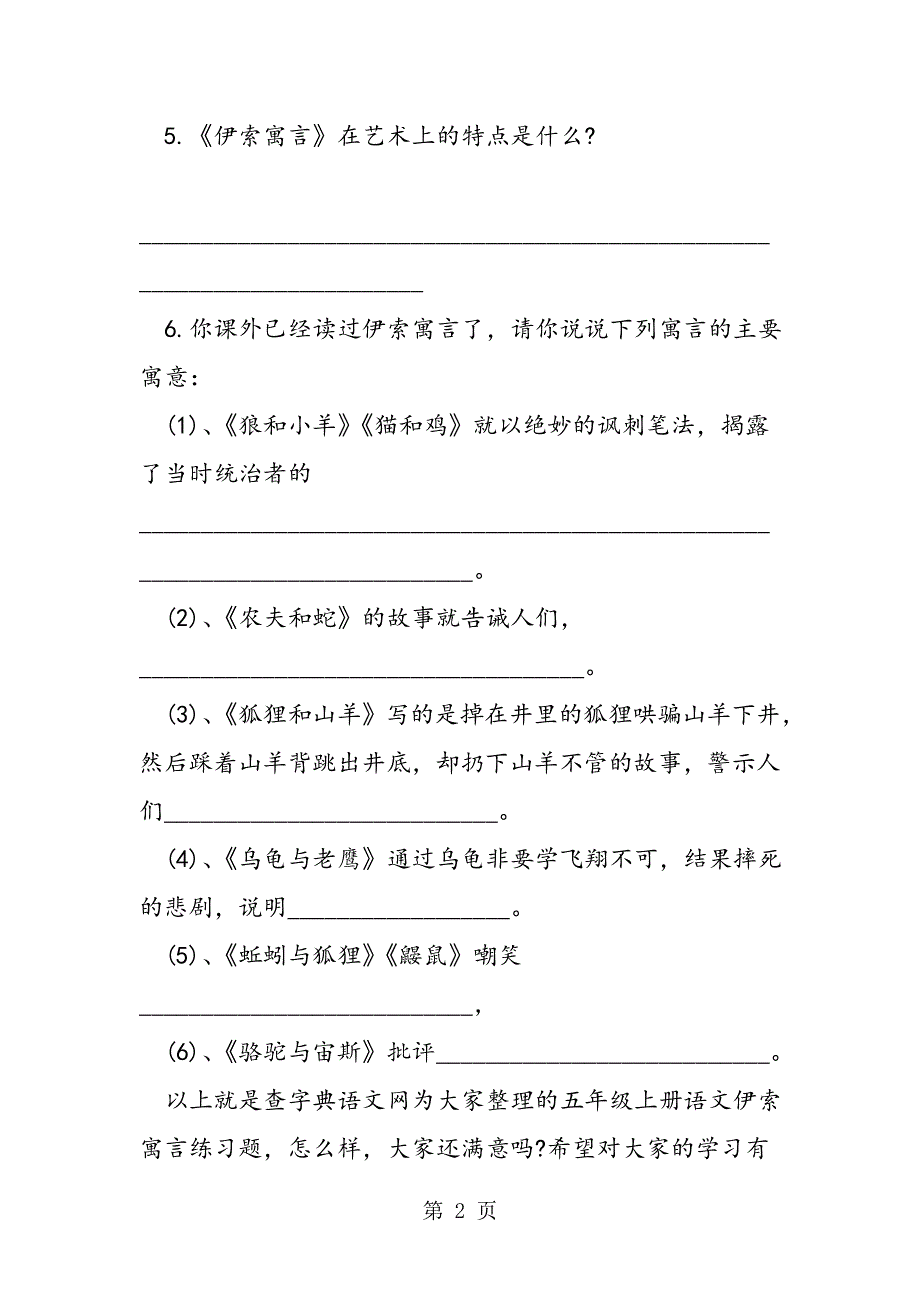 5.《伊索寓言》在艺术上的特点是什么?
___________________________________________________
_______________________
6.你课外已经读过伊索寓言了，请你说说下列寓言的主要
寓意：
(1)、《狼和小羊》《猫和鸡》就以绝妙的讽刺笔法，揭露
了当时统治者的
___________________________________________________
___________________________。
(2)、《农夫和蛇》的故事就告诫人们，
____________________________________。
(3)、《狐狸和山羊》写的是掉在井里的狐狸哄骗山羊下井，
然后踩着山羊背跳出井底，却扔下山羊不管的故事，警示人
们___________________________。
(4)、《乌龟与老鹰》通过乌龟非要学飞翔不可，结果摔死
的悲剧，说明__________________。
(5)、《蚯蚓与狐狸》《鼹鼠》嘲笑
___________________________，
(6)、《骆驼与宙斯》批评___________________________。
以上就是查字典语文网为大家整理的五年级上册语文伊索
寓言练习题，怎么样，大家还满意吗?希望对大家的学习有
第 2 页